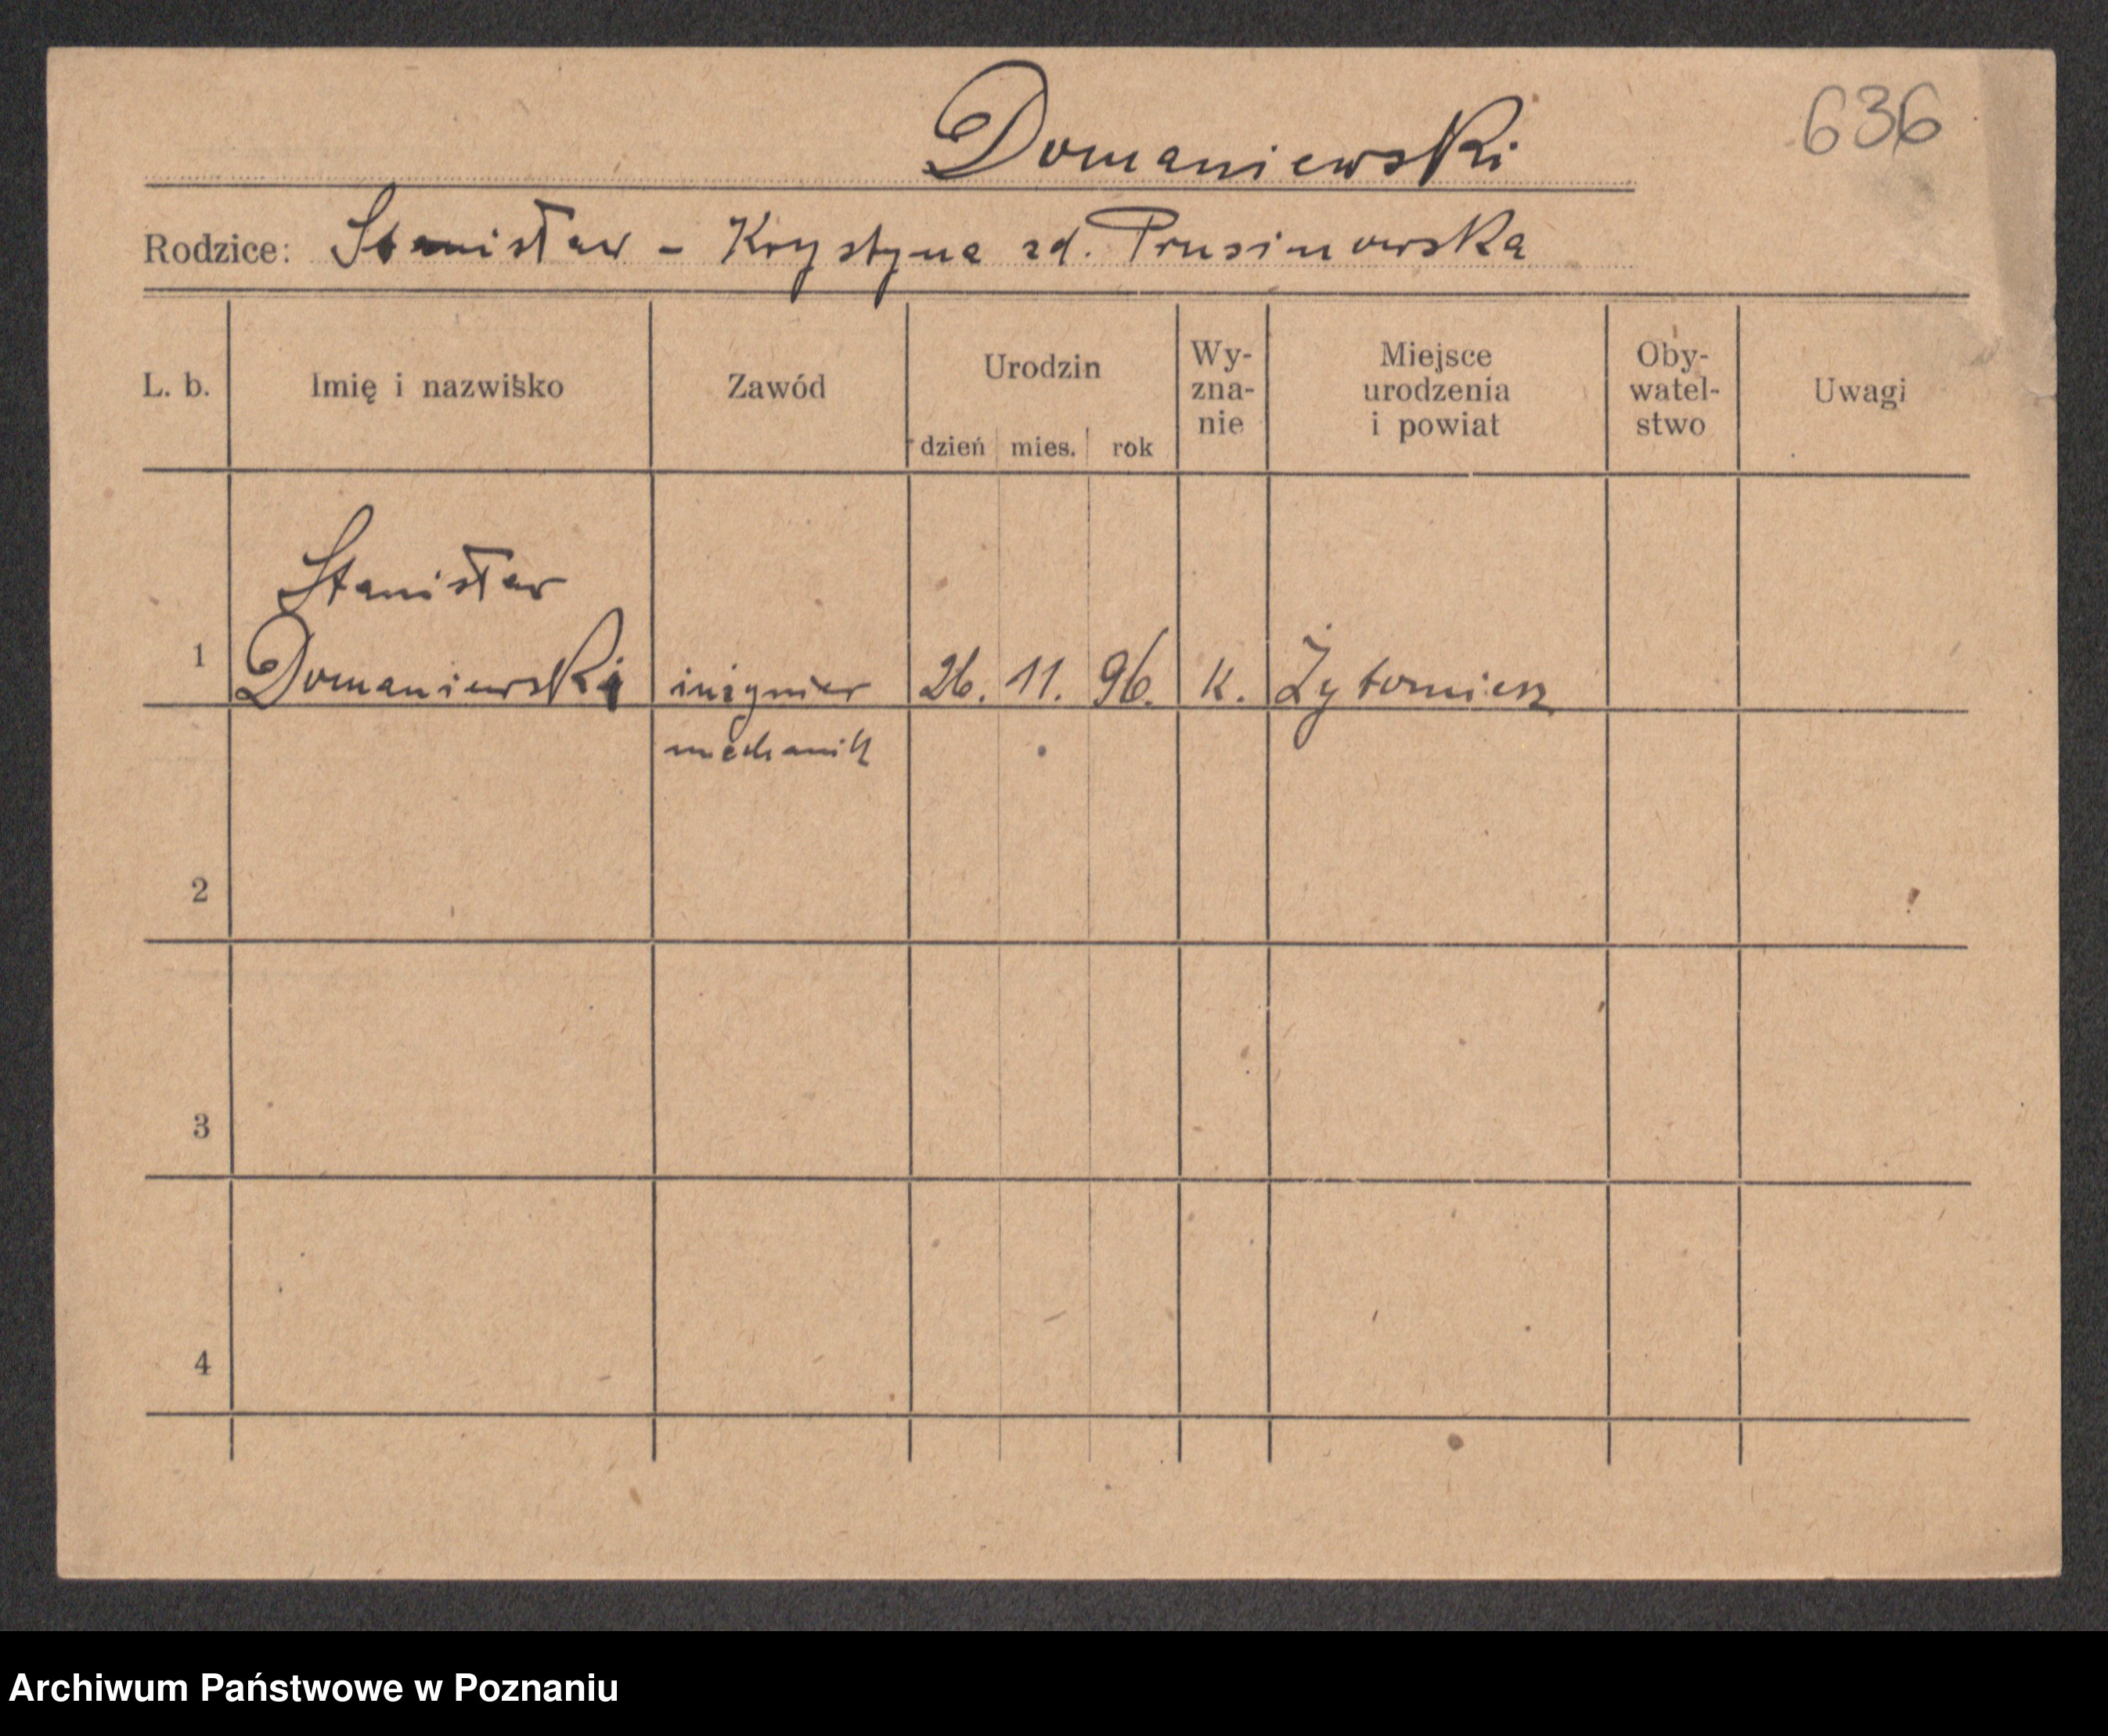 636
Domaniewski
Rodzice: Stanisław - Krystyna zd. Prusinowska
L. b. Imię i nazwisko Zawód Urodzin dzień mies. rok Wy-zna-nie Miejsce urodzenia i powiat Oby-watel-stwo Uwagi
Stanisław
1 Domaniewski inżynier 26. 11. 96. k. Żytomierz
mechanik
2
3
4
Archiwum Państwowe w Poznaniu